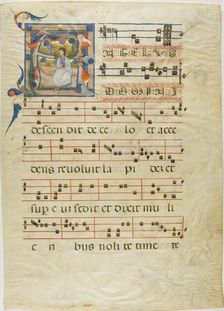 NGELVS
DOMINI
descen dit de ce lo et acce
dens revoluit la pi dez et
sup eum sedit et dixit muli
e ri bus noli te time re